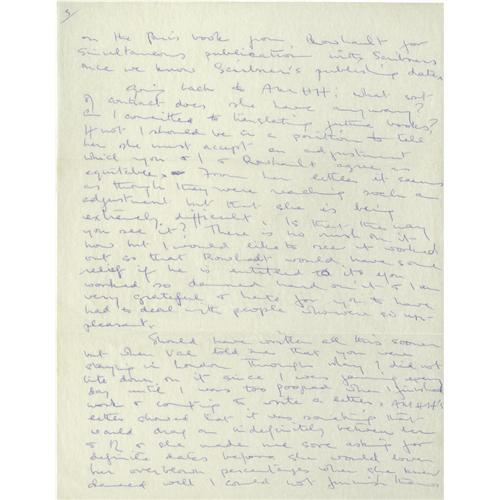 3/
on the Paris book from Rowhault for
simultaneous publication with Scribners
once we know Scribner's publishing dates
Going back to AMHH: what sort
of contract does she have anyway?
Am I committed to translating future books?
If not I should be in a position to tell
her she must accept an adjustment
which you & I & Rowhault agree as
equitable. From her letter it seems
as though they were reaching such an
adjustment but that she is being
extremely difficult. Is that the way
you see it? There is no rush on it
now but I would like to see it worked
out so that Rowhault would have some
relief if he is entitled to it. You
worked so damned hard on it & I am
very grateful & hate for you to have
had to deal with people who were so un-
pleasant.
Should have written all this sooner
but when Val told me that you were
staying in London through May I did not
bite down on it since I was
day until I was too pooped when I finished
work & counting to write a letter. AMHH's
letter showed that it was something that
would drag on indefinitely between her
& R & she made me sore asking for
definite dates before she would lower
her overblown percentages when she knew
damned well I could not furnish them